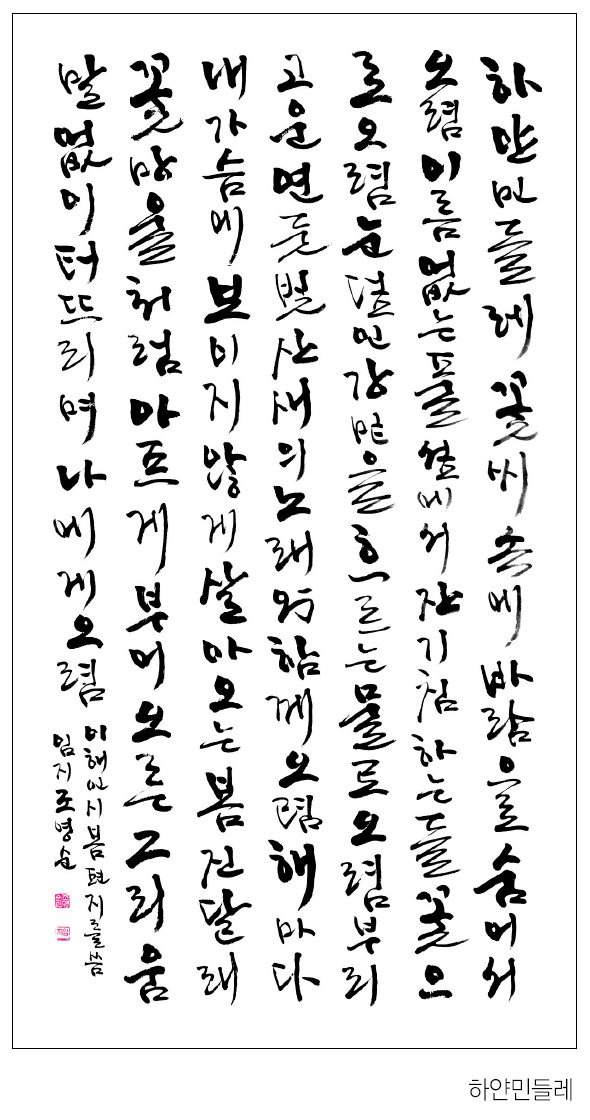 하얀민들레꽃씨속에바람으로숨어서
오렴이름없는풀섶에서잔기침하는들꽃으
로오렴눈덮인강밑을흐르는물로오렴부리
고운연둣빛산새의노래와함께오렴해마다
내가슴에보이지않게살아오는봄진달래
꽃망울처럼아프게부어오른그리움
말없이터뜨리며나에게오렴
이해인시봄편지를씀
임지조영순
하얀민들레